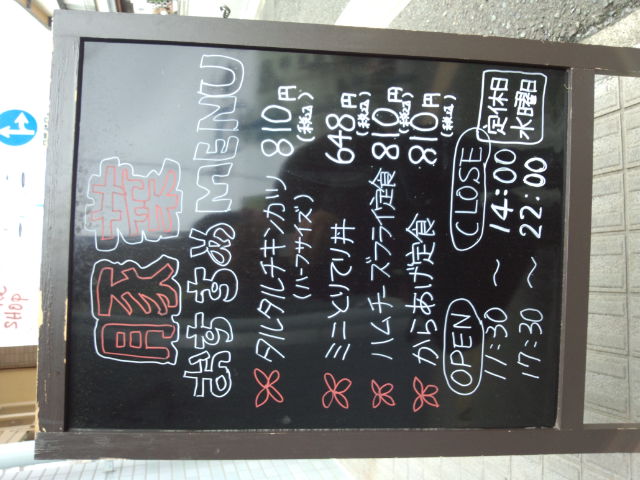 豚菜
おすすめMENU
タルタルチキンカツ 810円(税込)
(ハーフサイズ)
ミニとりてり丼 648円(税込)
ハムチーズフライ定食 810円(税込)
からあげ定食 810円(税込)
OPEN CLOSE 定休日 水曜日
11:30 ~ 14:00
17:30 ~ 22:00
SHOP